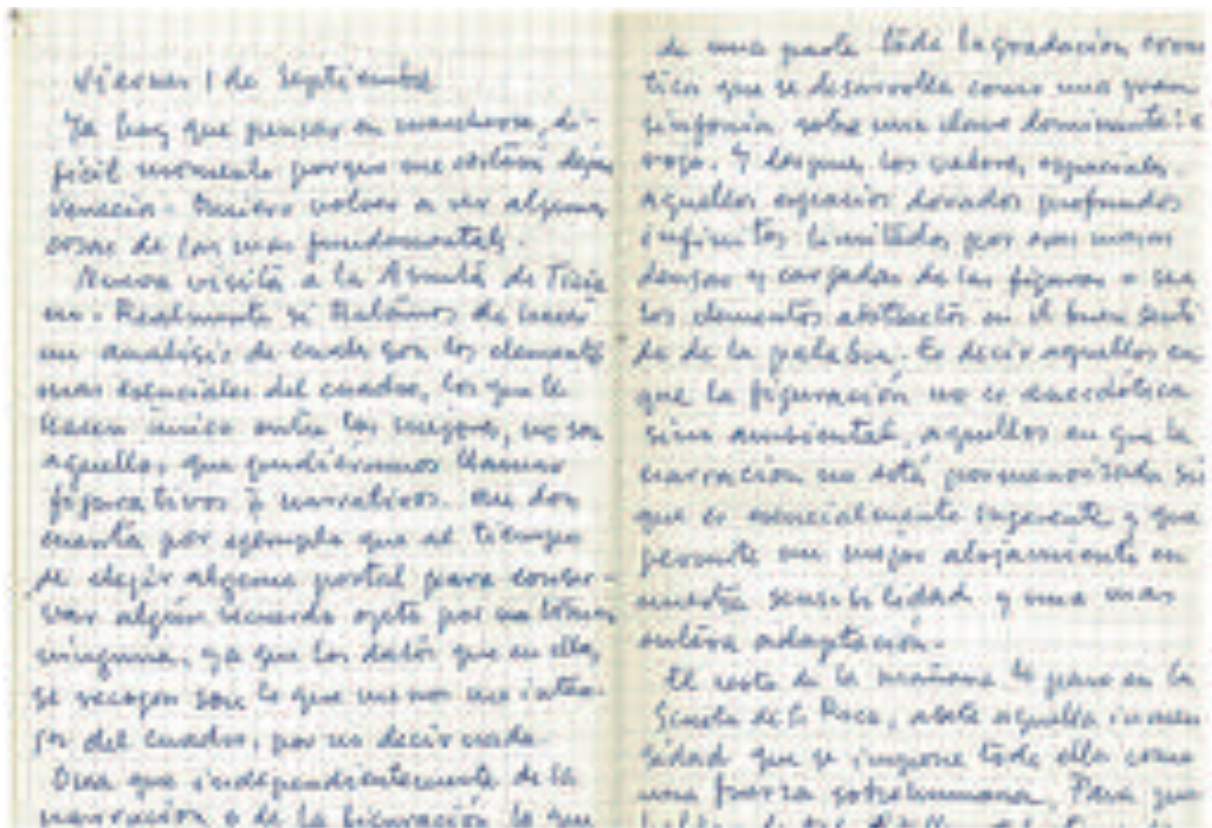 Viernes 1 de Septiembre
Ya hay que pensar en marcharse, di-
ficil momento porque me cuesta dejar
Venecia. Quiero volver a ver algunas
cosas de las mas fundamentales.
Nueva visita a la Asunta de Tizia
no. Realmente si tratamos de hacer
un analisis de cuales son los elementos
mas esenciales del cuadro, los que le
hacen unico entre los mejores, no son
aquellos que pudieramos llamar
figurativos o narrativos. Me doy
cuenta por ejemplo que al tiempo
de elegir alguna postal para conser-
var algún recuerdo opto por no tomar
ninguna, ya que los datos que en ellas
se recogen son lo que menos me intere-
sa del cuadro, por no decir nada.
O sea que independientemente de la
narración o de la figuración lo que
de una parte toda la gradación croma
tica que se desarrolla como una gran
sinfonía sobre una clave dominante: el
rojo. Y despues los valores espaciales.
Aquellos espacios dorados profundos
infinitos limitados por esas masas
densas y cargadas de las figuras o sea
los elementos abstractos en el buen senti
do de la palabra. Es decir aquellos en
que la figuración no es anecdótica
sino ambiental, aquellos en que la
narración no está pormenorizada si
que es esencialmente sugerente y que
permite un mejor alojamiento en
nuestra sensibilidad y una mas
entera adaptación.
El resto de la mañana lo paso en la
Scuola de S. Roco, ante aquella inmen
sidad que se impone toda ella como
una fuerza sobrehumana. Para que